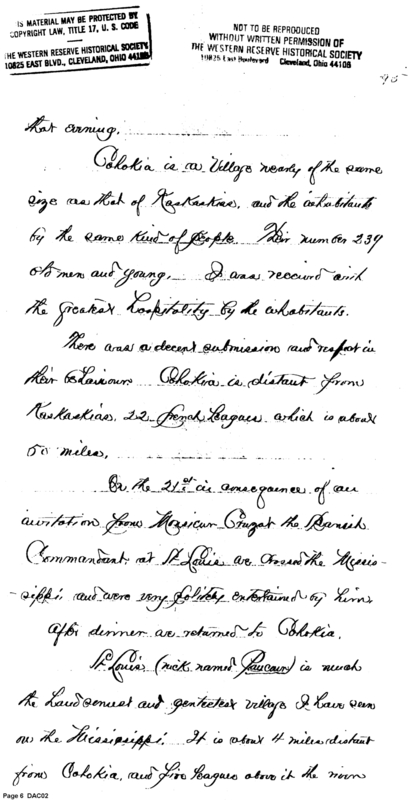 IS MATERIAL MAY BE PROTECTED BY
COPYRIGHT LAW, TITLE 17, U. S. CODE
THE WESTERN RESERVE HISTORICAL SOCIETY
10825 EAST BLVD., CLEVELAND, OHIO 44106
NOT TO BE REPRODUCED
WITHOUT WRITTEN PERMISSION OF
THE WESTERN RESERVE HISTORICAL SOCIETY
10825 East Boulevard Cleveland, Ohio 44106
that evening.
Cohokia is a Village nearly of the same
size as that of Kaskaskias, and the inhabitants
by the same kind of people. Their number 239
old men and young. I was received with
the greatest hospitality by the inhabitants.
There was a decent submission and respect in
their behaviour. Cohokia is distant from
Kaskaskias, 22 french leagues which is about
50 miles.
On the 21st in consequence of an
invitation from Monsieur Cruzat the Spanish
Commandant at St. Louis we crossed the Missis-
-sippi and were very politely entertained by him
After dinner we returned to Cohokia.
St. Louis (nick named Paucour) is much
the handsomest and genteelest village I have seen
on the Mississippi. It is about 4 miles distant
from Cohokia, and five leagues above it the river
Page 6 DAC02